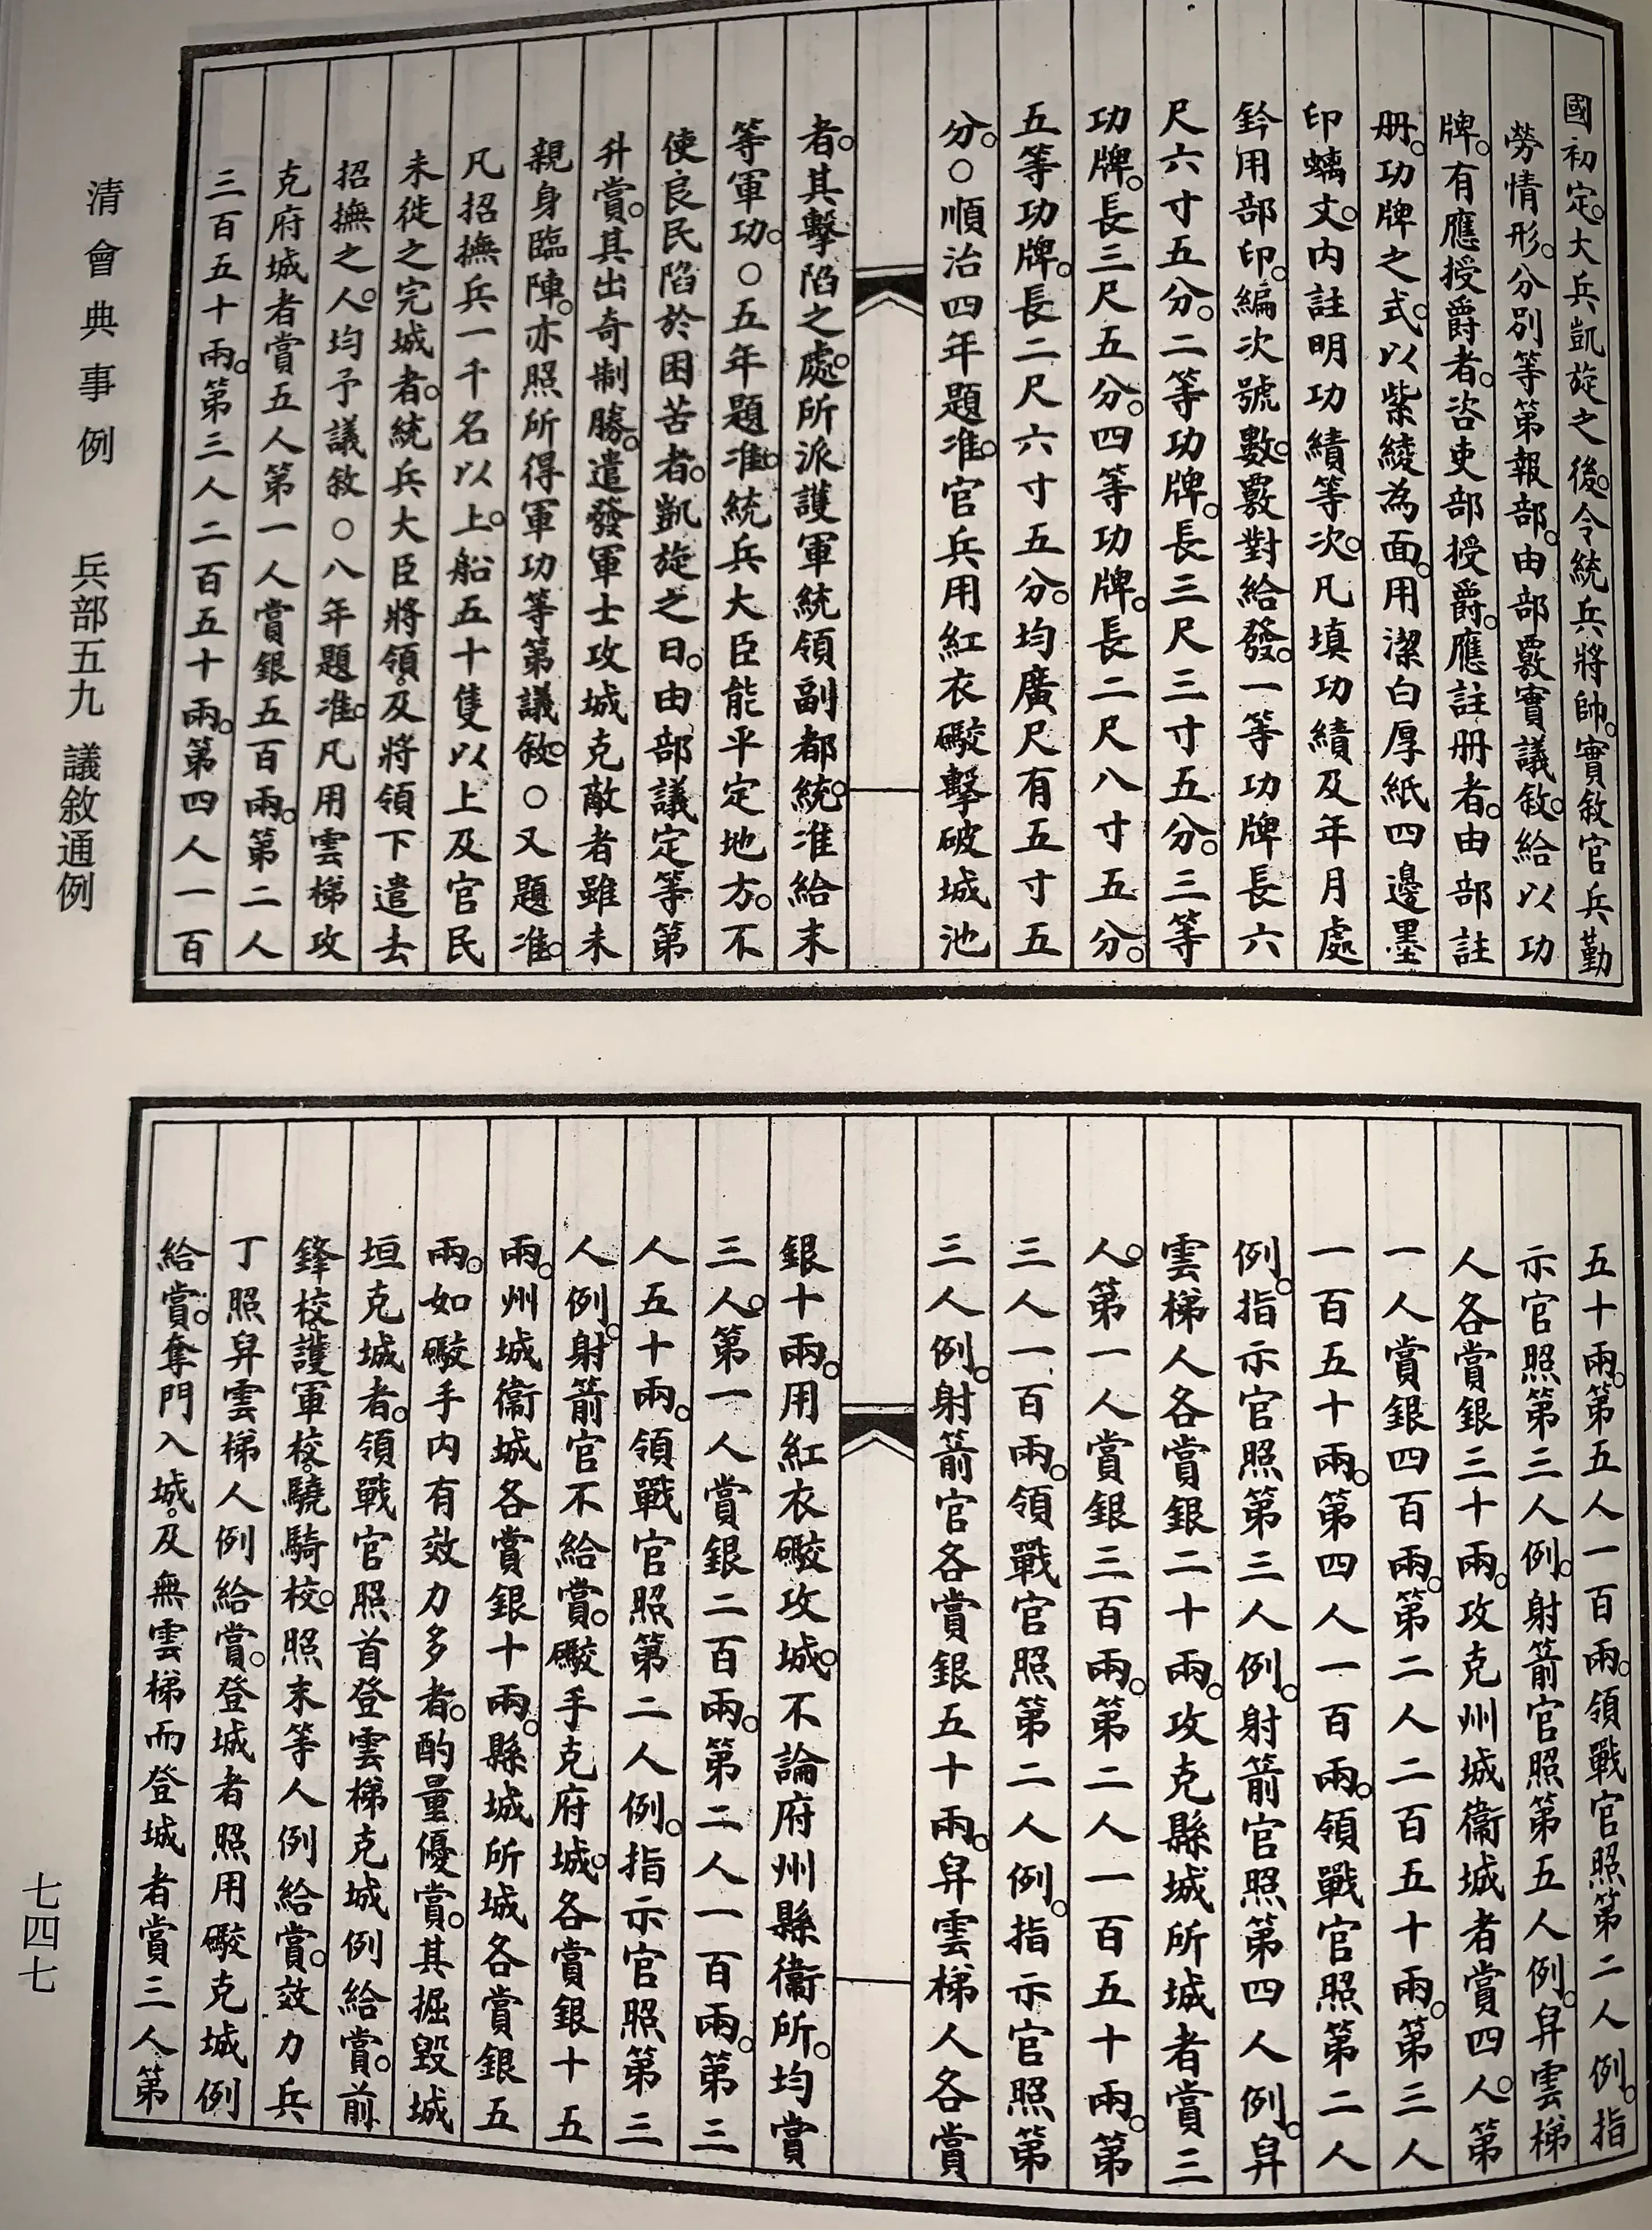 國初定。大兵凱旋之後。令統兵將帥。實敘官兵勤
勞情形。分別等第報部。由部覈實議敘。給以功
牌。有應授爵者。咨吏部授爵。應註册者。由部註
册。功牌之式。以紫綾為面。用潔白厚紙四邊墨
印螭文。內註明功績等次。凡填功績及年月處
鈐用部印。編次號數。覈對給發。一等功牌長六
尺六寸五分。二等功牌。長三尺三寸五分。三等
功牌。長三尺五分。四等功牌。長二尺八寸五分。
五等功牌。長二尺六寸五分。均廣尺有五寸五
分。○順治四年題准。官兵用紅衣礮擊破城池
者。其擊陷之處。所派護軍統領副都統。准給末
等軍功。○五年題准。統兵大臣能平定地方。不
使良民陷於困苦者。凱旋之日。由部議定等第
升賞。其出奇制勝。遣發軍士攻城克敵者雖未
親身臨陣。亦照所得軍功等第議敘。○又題准。
凡招撫兵一千名以上。船五十隻以上及官民
未徙之完城者。統兵大臣將領。及將領下遣去
招撫之人。均予議敘○八年題准。凡用雲梯攻
克府城者賞五人第一人賞銀五百兩。第二人
三百五十兩。第三人二百五十兩。第四人一百
清會典事例 兵部五九 議敘通例
五十兩。第五人一百兩。領戰官照第二人例。指
示官照第三人例。射箭官照第五人例。舁雲梯
人各賞銀三十兩。攻克州城衞城者賞四人。第
一人賞銀四百兩。第二人二百五十兩。第三人
一百五十兩。第四人一百兩。領戰官照第二人
例。指示官照第三人例。射箭官照第四人例。舁
雲梯人各賞銀二十兩。攻克縣城所城者賞三
人。第一人賞銀三百兩。第二人一百五十兩。第
三人一百兩。領戰官照第二人例。指示官照第
三人例。射箭官各賞銀五十兩。舁雲梯人各賞
銀十兩。用紅衣礮攻城。不論府州縣衞所。均賞
三人。第一人賞銀二百兩。第二人一百兩。第三
人五十兩。領戰官照第二人例。指示官照第三
人例。射箭官不給賞。礮手克府城。各賞銀十五
兩。州城衞城各賞銀十兩。縣城所城各賞銀五
兩。如礮手內有效力多者。酌量優賞。其掘毀城
垣克城者。領戰官照首登雲梯克城例給賞。前
鋒校。護軍校。驍騎校。照末等人例給賞。效力兵
丁照舁雲梯人例給賞。登城者照用礮克城例
給賞。奪門入城。及無雲梯而登城者賞三人第
七四七